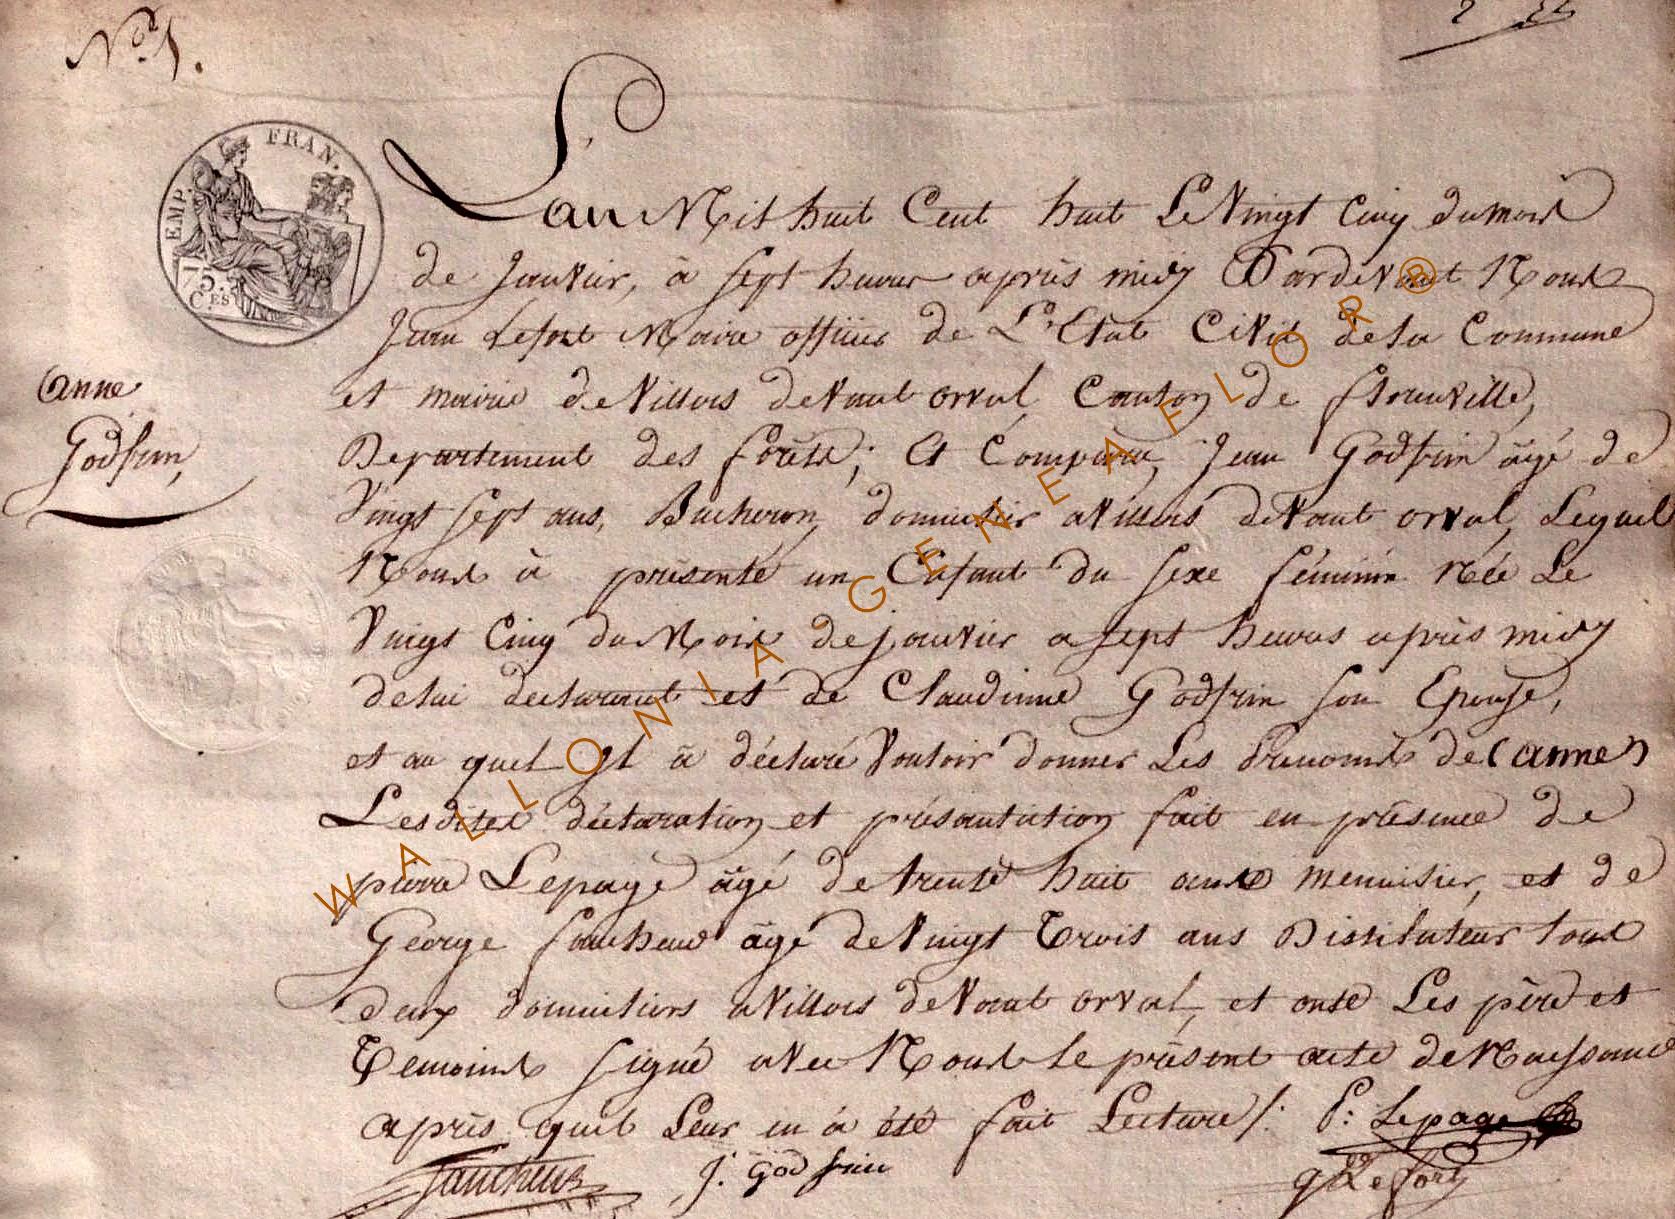 N.º 1.
EMP. FRAN.
75.
C.ES
L'an Mil huit Cent huit Le Vingt Cinq du mois
de Janvier, à sept heures après midy Pardevant Nous
Jean Lefort Maire officier de L'Etat Civil de la Commune
et mairie de Villers devant orval, Canton de florenville,
Departement des forêts; Et Comparu, Jean Godfrin âgé de
Vingt sept ans, Bucheron, domicilier a Villers devant orval, Lequel
Nous à présenté un Enfant du sexe féminin Née Le
Vingt Cinq du Mois de janvier a sept heures après midy
de lui declarant et de Claudinne Godfrin son Epouse,
et au quel Il à déclaré Vouloir donner Les Prenoms de (anne)
Lesdites déclaration et présantation fait en présence de
pierre Lepage âgé de trente huit ans menuisier, et de
George faucheux âgé de Vingt Trois ans Distilateur tous
deux domiciliers a Villers devant orval, et onse Les père et
Temoins signé avec Nous le présent acte de Naissance
après quil Leur en à été fait Lecture /: P: Lepage
faucheux J. Godfrin Lefort
anne
Godfrin,
WALLONIA GENEAFLOR®